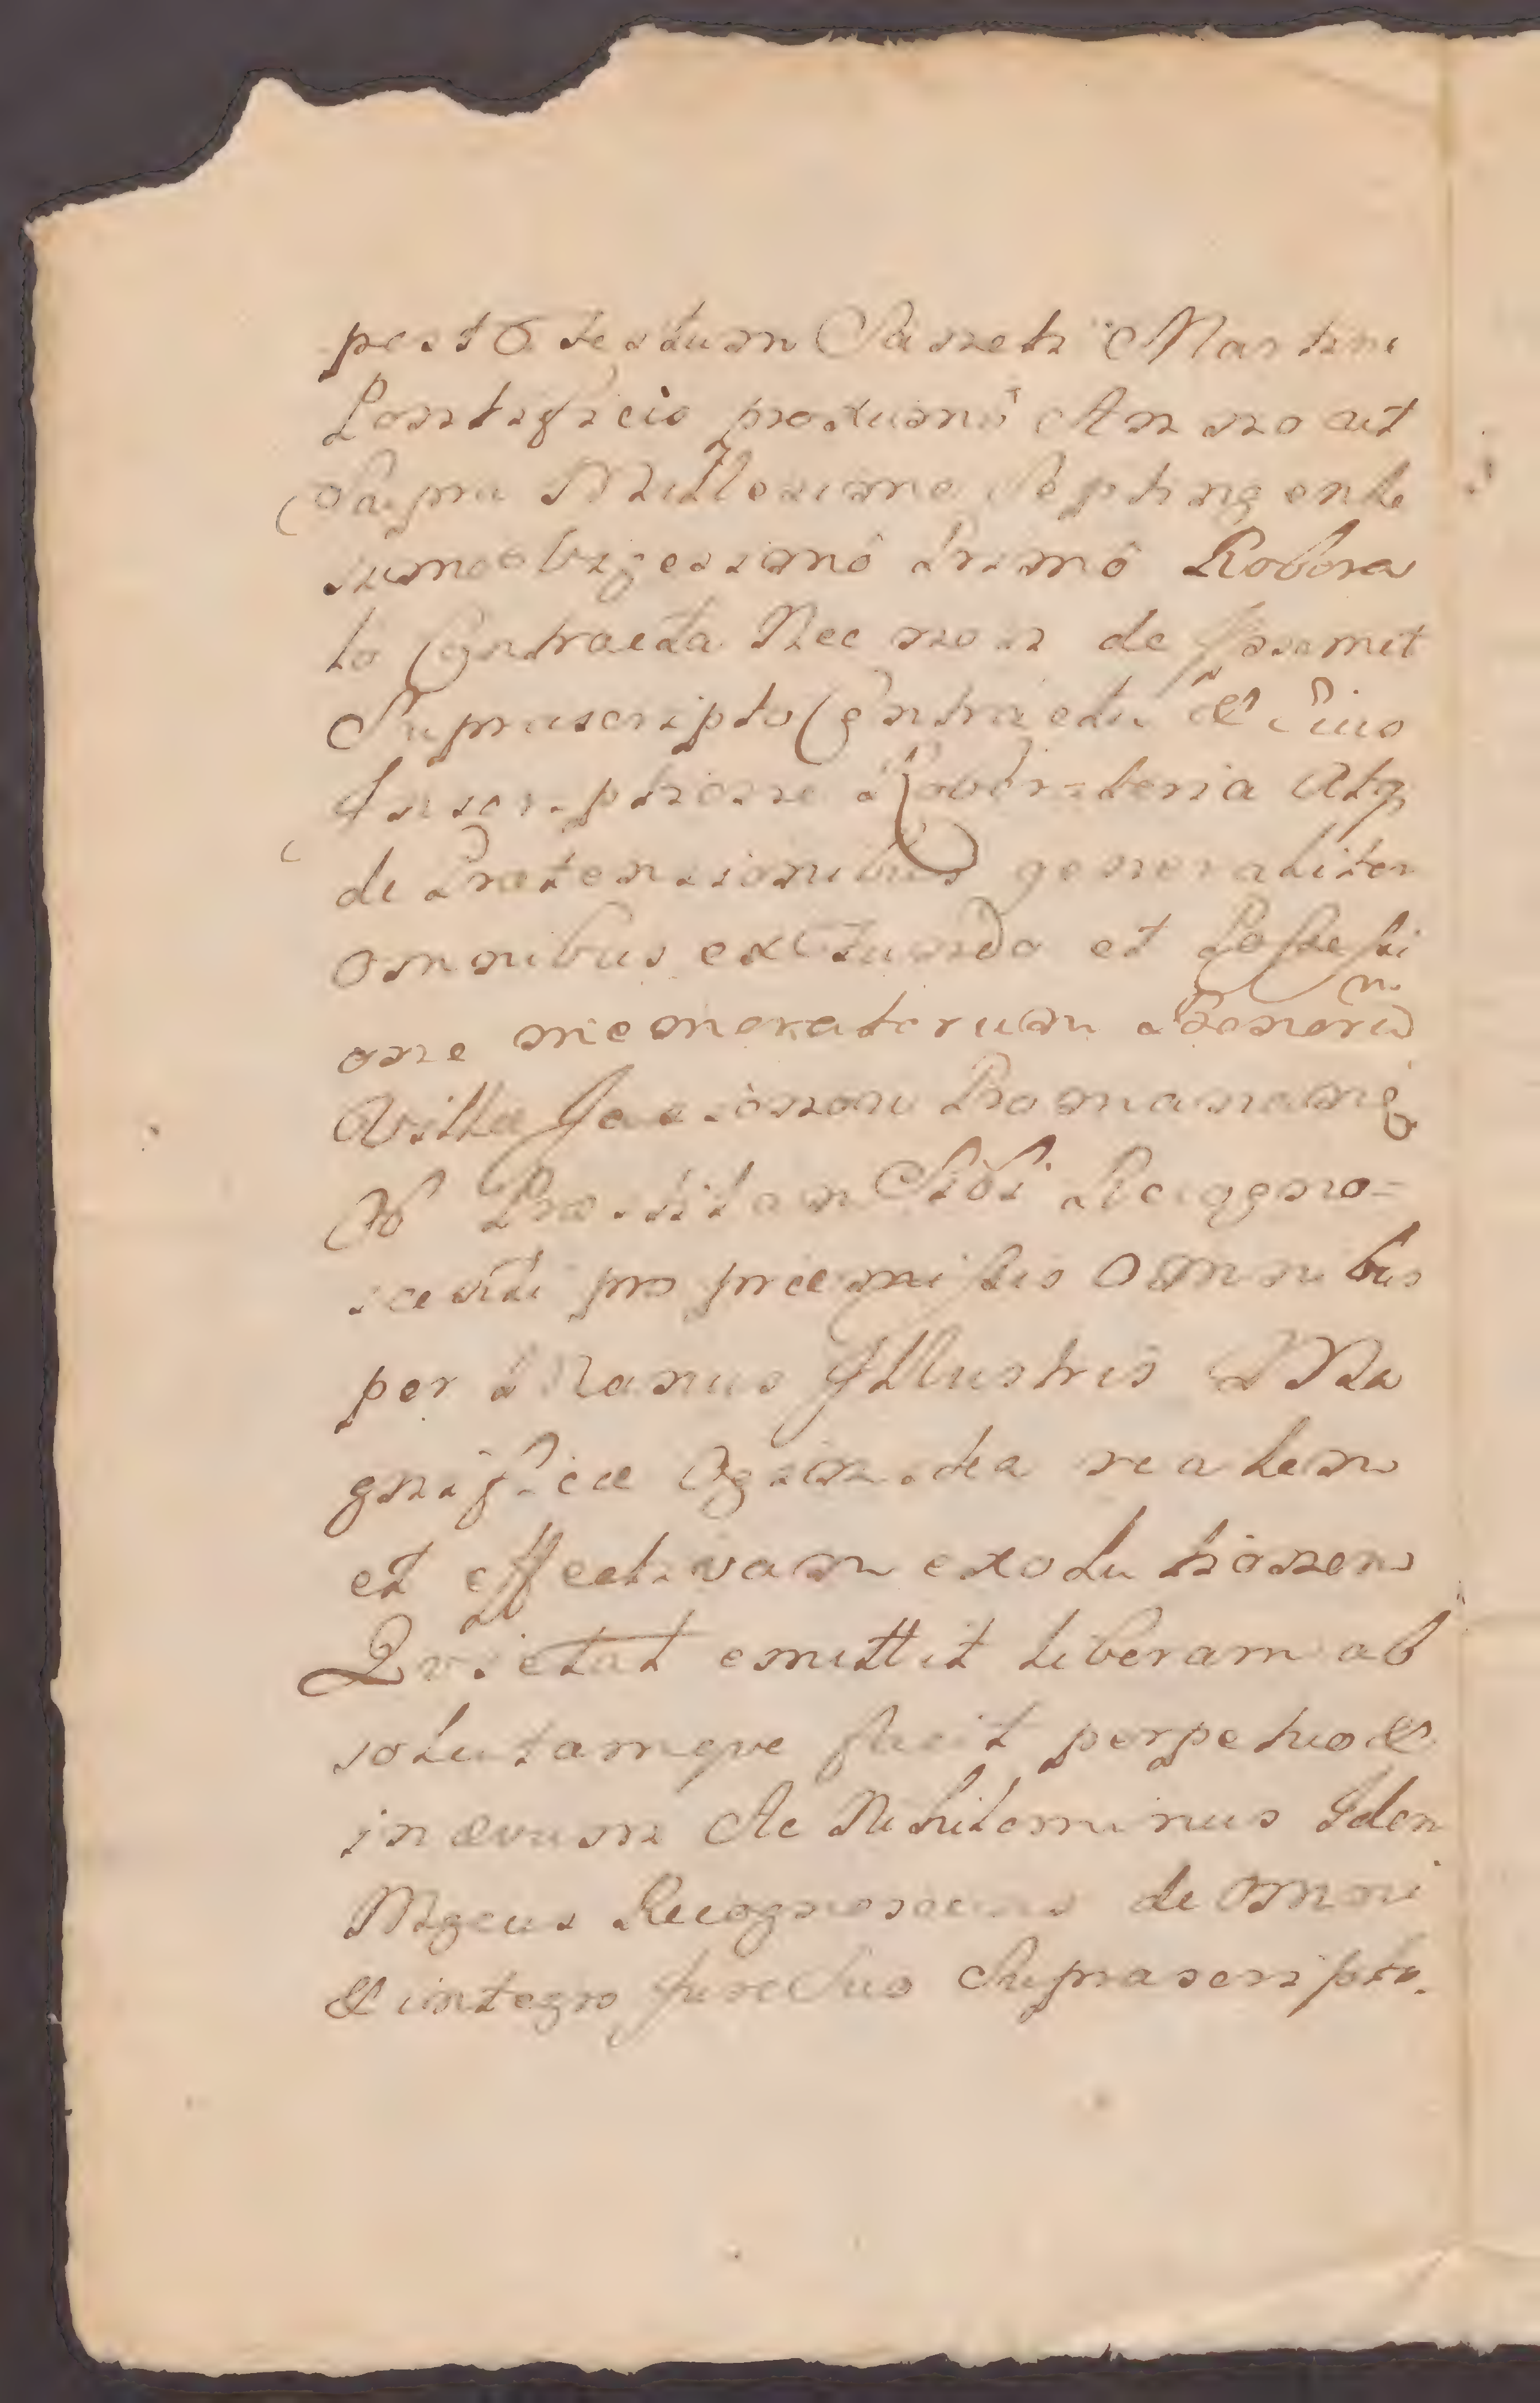 post Festum Sancti Martini
Pontificis proximô Anno ut
Supra Millesimo Septingente
simo Vigesimô Primô Robora
to Contracta Nec non de Ipsomet
Supra scripto Contractu & Eius
Inscriptione Roboratoria Atq
de Prætensionibus generaliter
omnibus ex et Possessi
one memoratorum Bonorũ
Villæ
Ob Præstitam Sibi Recogno=
scenti pro præmissis Omnibus
per Manus Illustris Ma
gnificæ realem
et effectivam exolutionem
Quietat emittit liberam ab
solutamque facit perpetuo &
in ævum Ac Nihilominus Idem
Mgcus Recognoscens de Omni
& integro Jure Suo Suprascripto.